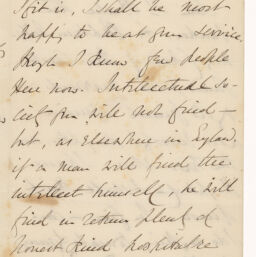 If it is, I shall be most
happy to be at your service.
Though I know few people
Here now. Intellectual So-
ciety you will not find –
but, as elsewhere in England,
if a man will find the
intellect himself, he will
find in return plenty of
honest kind hospitable